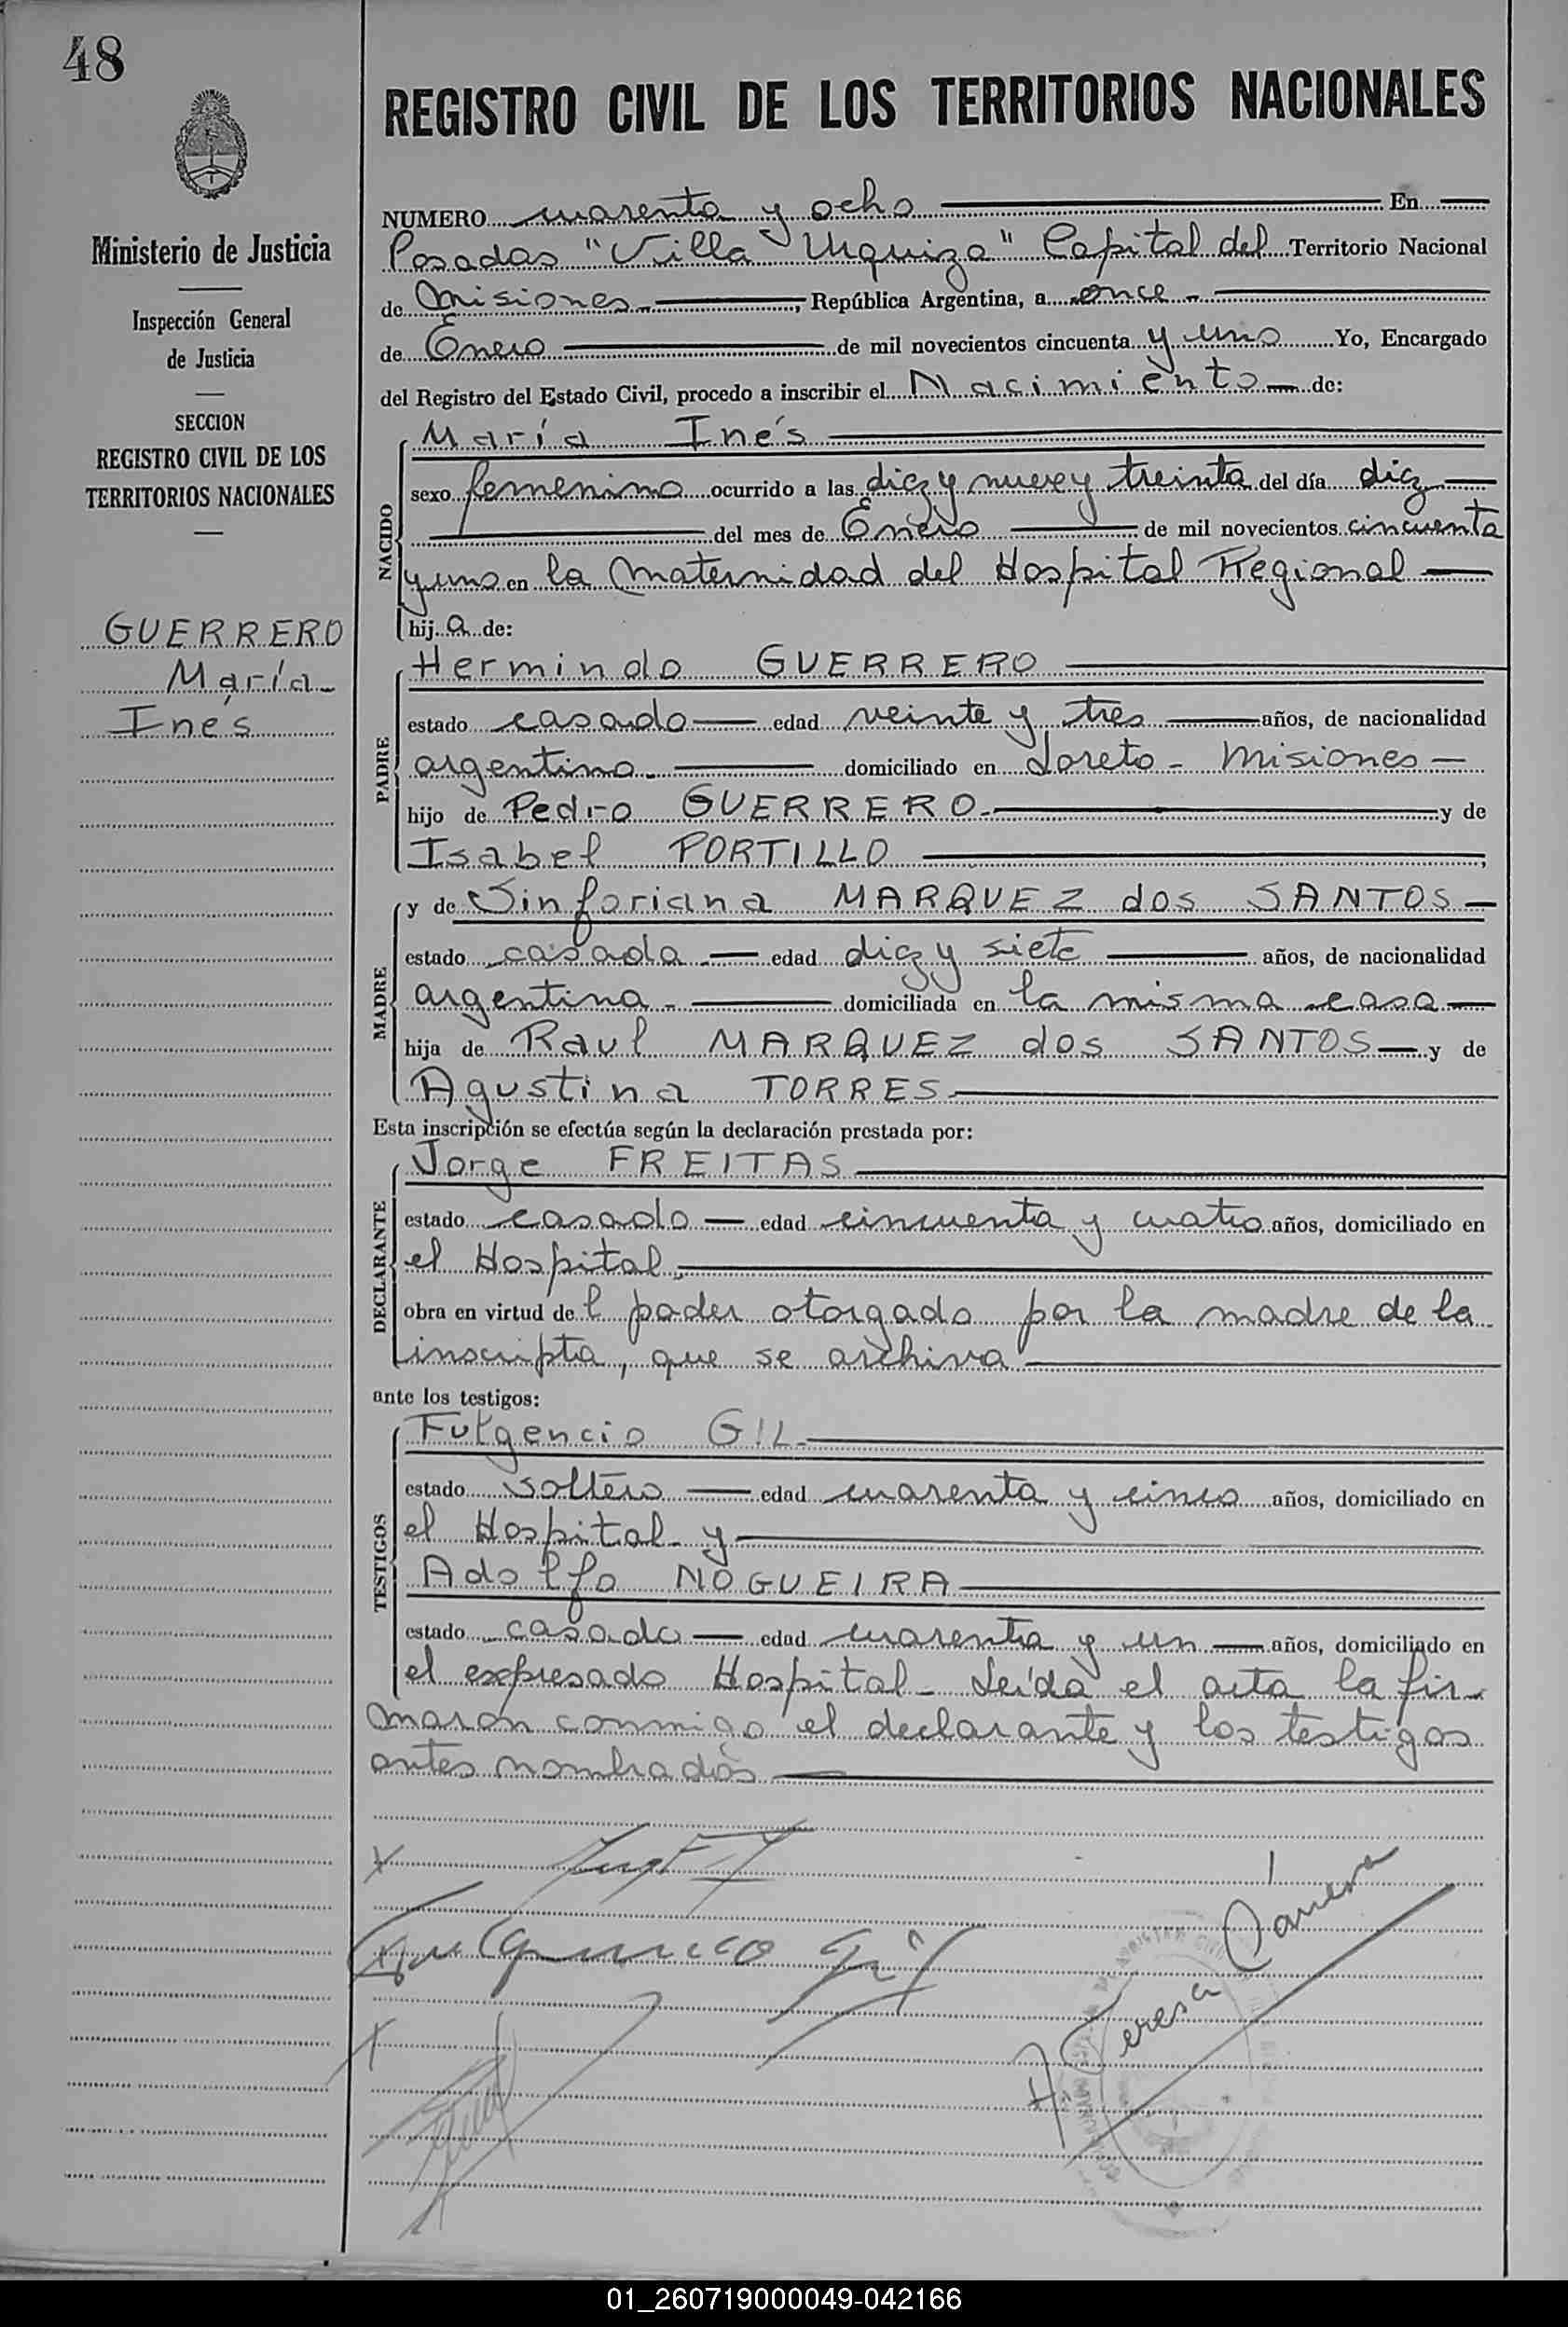 48
REGISTRO CIVIL DE LOS TERRITORIOS NACIONALES
Ministerio de Justicia
Inspección General
de Justicia
SECCION
REGISTRO CIVIL DE LOS
TERRITORIOS NACIONALES
GUERRERO
María
Inés
NUMERO cuarenta y ocho En
Posadas "Villa Urquiza" Capital del Territorio Nacional
de Misiones, República Argentina, a once
de Enero de mil novecientos cincuenta y uno Yo, Encargado
del Registro del Estado Civil, procedo a inscribir el Nacimiento de:
NACIDO
María Inés
sexo femenino ocurrido a las diez y nueve y treinta del día diez
del mes de Enero de mil novecientos cincuenta
y uno en la Maternidad del Hospital Regional
hija de:
PADRE
Hermindo GUERRERO
estado casado edad veinte y tres años, de nacionalidad
argentino domiciliado en Loreto - Misiones
hijo de Pedro GUERRERO y de
Isabel PORTILLO,
MADRE
y de Sinforiana MARQUEZ dos SANTOS
estado casada edad diez y siete años, de nacionalidad
argentina domiciliada en la misma casa
hija de Raul MARQUEZ dos SANTOS y de
Agustina TORRES
Esta inscripción se efectúa según la declaración prestada por:
DECLARANTE
Jorge FREITAS
estado casado edad cincuenta y cuatro años, domiciliado en
el Hospital
obra en virtud del poder otorgado por la madre de la
inscripta, que se archiva
ante los testigos:
TESTIGOS
Fulgencio GIL
estado soltero edad cuarenta y cinco años, domiciliado en
el Hospital y
Adolfo NOGUEIRA
estado casado edad cuarenta y un años, domiciliado en
el expresado Hospital - Leída el acta la fir-
maron conmigo el declarante y los testigos
antes nombrados
Fulgencio Gil
Teresa
01_260719000049-042166